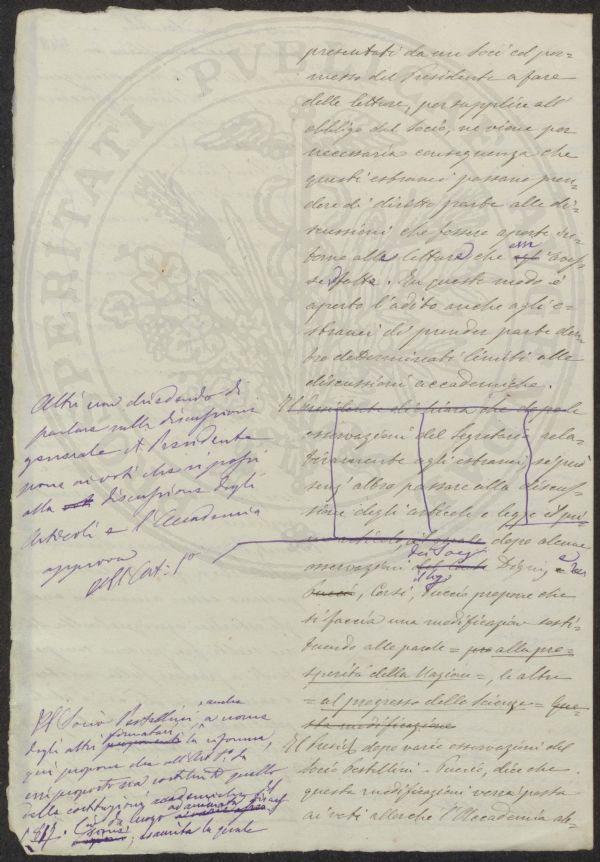 PERITATI PUBLICAE
presentati da un Socî col per=
messo del Presidente a fare
delle letture, per supplire all'
obbligo del Socio, ne viene per
necessaria conseguenza che
questi estranei possano pren=
dere di diritto parte alle di=
scussioni che fossero aperte in=
torno alla lettura che
. In questo modo è
aperto l'adito anche agli e=
stranei di prender parte den=
tro determinati limiti alle
discussioni accademiche.
Il Presidente dichiara che dopo le
osservazioni del Segretario rela=
tivamente agli estranei si può
senz'altro passare alla discus=
sione degli articoli e legge il pri=
mo articolo, il quale dopo alcune
osservazioni dei Socj Digny, e De
Corsi, Puccio propone che
si faccia una modificazione sosti=
tuendo alle parole = alla pro=
sperità della Nazione =, le altre
= al progresso delle Scienze = Que=
sta modificazione
Il Presid. dopo varie osservazioni del
Socio Pestellini e Puccio, dice che
questa modificazione verrà posta
ai voti allorchè l'Accademia ab=
Altri non chiedendo di
parlare sulla discussione
generale il Presidente
pone ai voti che si passi
alla discussione degli
Articoli e l'Accademia
approva
sull'Art: 1º
Il Socio Pestellini, anche a nome
degli altri firmatari proponenti la riforma,
qui propone che all'Art 1º da
essi proposto sia sostituito quello
della costituzione accademica del
1817. Ciò dà luogo ad animata
esaurita la quale